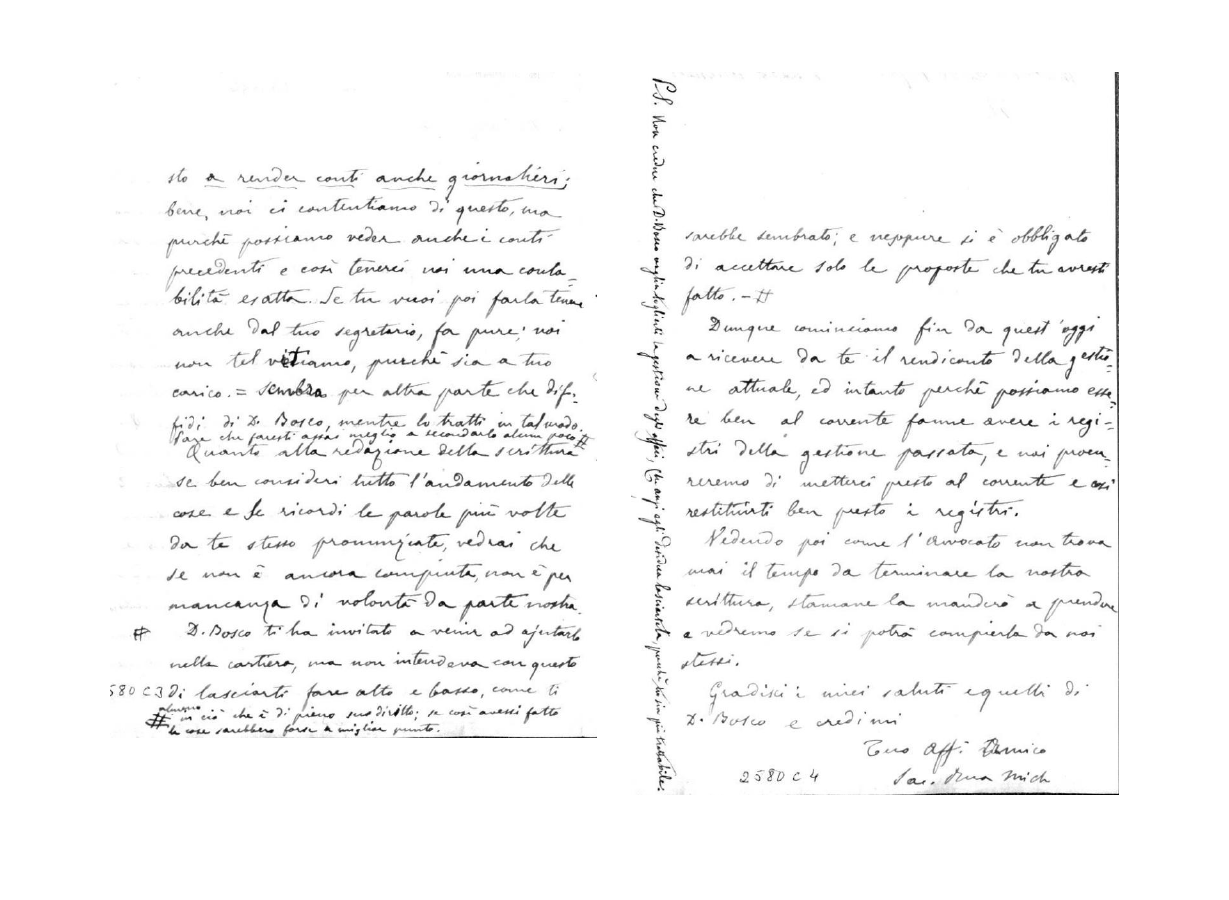 sto a render conti anche giornalieri;
bene, noi ci contentiamo di questo, ma
purchè possiamo veder anche i conti
precedenti e così tenerci noi una conta=
bilità esatta. Se tu vuoi poi farla tenere
anche dal tuo segretario, fa pure; noi
non tel vietiamo, purchè sia a tuo
carico. = Sembra per altra parte che dif-
fidi di D. Bosco, mentre lo tratti in tal modo.
Pare che faresti assai meglio a secondarlo alcun poco #
Quanto alla redazione della scrittura
se ben consideri tutto l'andamento delle
cose e se ricordi le parole più volte
da te stesso pronunziate, vedrai che
se non è ancora compiuta, non è per
mancanza di volontà da parte nostra.
# D. Bosco ti ha invitato a venir ad ajutarlo
nella cartiera, ma non intendeva con questo
580 C3 di lasciarti fare alto e basso, come ti
# almeno in ciò che è di pieno suo diritto; se così avessi fatto
le cose sarebbero forse a miglior punto.
P.S. Non credere che D. Bosco voglia toglierti la gestione degli affari; che anzi egli desidera lasciartela, purchè tu sii più trattabile.
sarebbe sembrato; e neppure si è obbligato
di accettare solo le proposte che tu avresti
fatto. - #
Dunque cominciamo fin da quest'oggi
a ricevere da te il rendiconto della gestio-
ne attuale, ed intanto perchè possiamo esse-
re ben al corrente fanne avere i regi-
stri della gestione passata, e noi procu-
reremo di metterci presto al corrente e così
restituirti ben presto i registri.
Vedendo poi come l'Avvocato non trova
mai il tempo da terminare la nostra
scrittura, stamane la manderò a prendere
e vedremo se si potrà compierla da noi
stessi.
Gradisci i miei saluti e quelli di
D. Bosco e credimi
Tuo Aff. Amico
Sac. Rua Mich
2580 C4